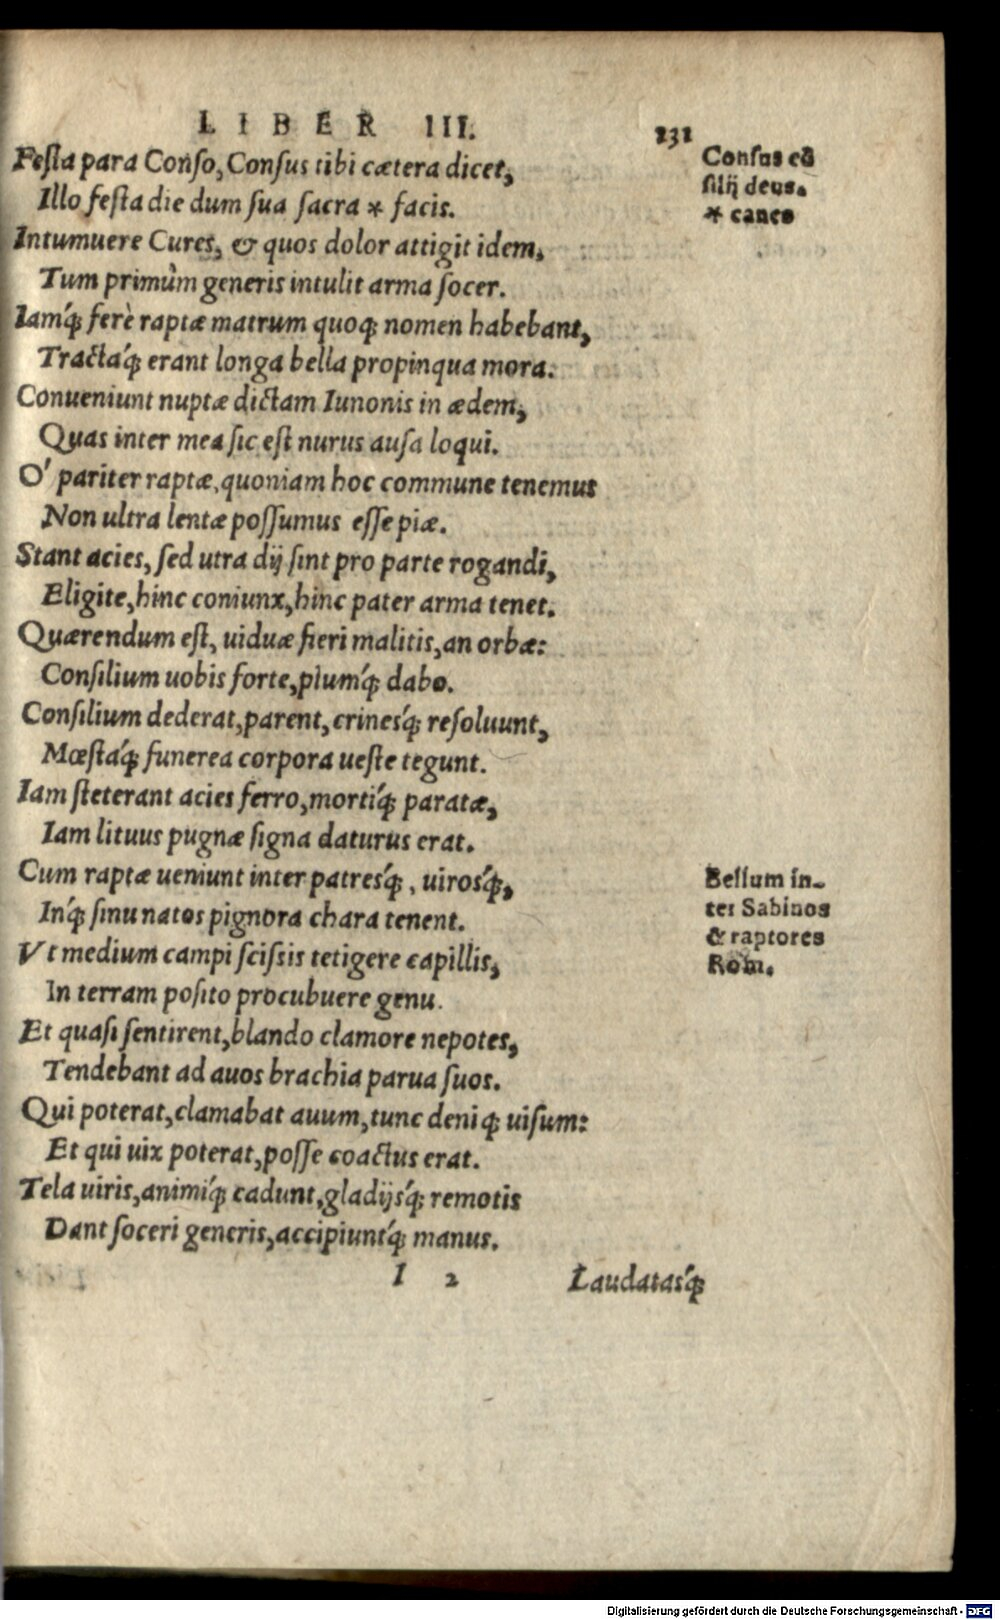 LIBER III. 131
Festa para Conso, Consus tibi cætera dicet,
Illo festa die dum sua sacra * facis.
Intumuere Cures, & quos dolor attigit idem,
Tum primùm generis intulit arma socer.
Iamq́; ferè raptæ matrum quoq; nomen habebant,
Tractaq́; erant longa bella propinqua mora.
Conueniunt nuptæ dictam Iunonis in ædem,
Quas inter mea sic est nurus ausa loqui.
O' pariter raptæ, quoniam hoc commune tenemus
Non ultra lentæ possumus esse piæ.
Stant acies, sed utra dij sint pro parte rogandi,
Eligite, hinc coniunx, hinc pater arma tenet.
Quærendum est, uiduæ fieri malitis, an orbæ:
Consilium uobis forte, piumq́; dabo.
Consilium dederat, parent, crinesq́; resoluunt,
Mœstaq́; funerea corpora ueste tegunt.
Iam steterant acies ferro, mortiq́; paratæ,
Iam lituus pugnæ signa daturus erat.
Cum raptæ ueniunt inter patresq́;, uirosq́;,
Inq́; sinu natos pignora chara tenent.
Vt medium campi scissis tetigere capillis,
In terram posito procubuere genu.
Et quasi sentirent, blando clamore nepotes,
Tendebant ad auos brachia parua suos.
Qui poterat, clamabat auum, tunc deniq; uisum:
Et qui uix poterat, posse coactus erat.
Tela uiris, animiq́; cadunt, gladijsq́; remotis
Dant soceri generis, accipiuntq́; manus.
I 2 Laudatasq́;
Consus cō
silij deus.
* canes
Bellum in-
ter Sabinos
& raptores
Rom.
Digitalisierung gefördert durch die Deutsche Forschungsgemeinschaft - DFG